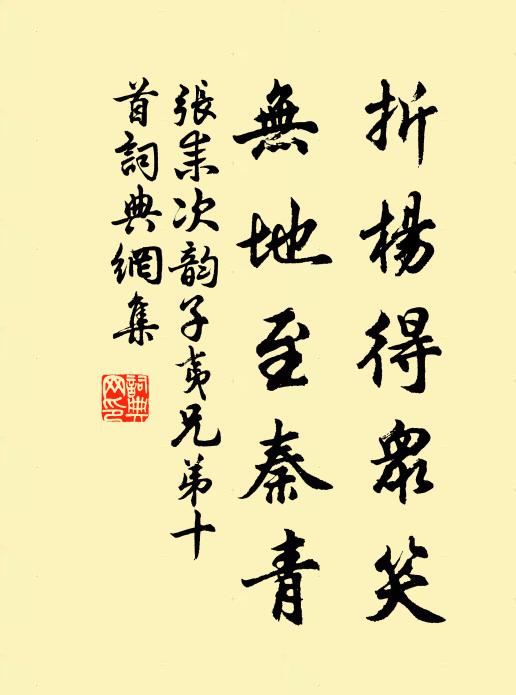 折楊得衆笑
無地至秦青
張耒次韵子夷兄弟十
首詞典網集
詞典網印